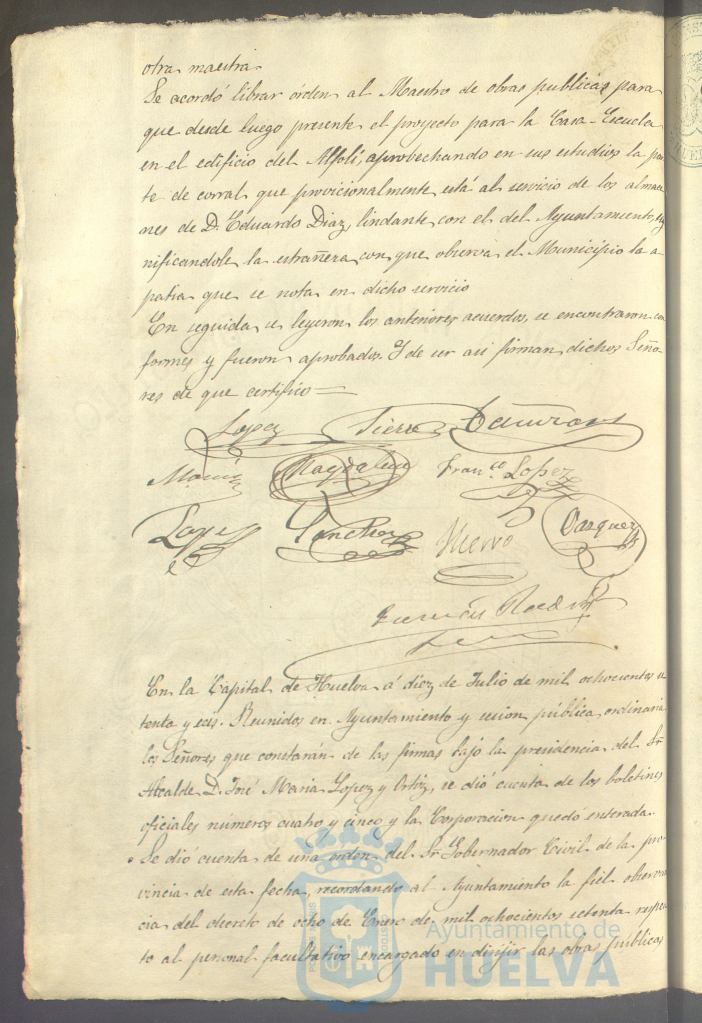 otra maestra.
Se acordó librar orden al Maestro de obras publicas para
que desde luego presente el proyecto para la Casa-Escuela
en el edificio del Alfolí, aprovechando en sus estudios la par
te de corral que provicionalmente está al servicio de los almace
nes de D. Eduardo Diaz, lindante con el del Ayuntamiento, sig
nificandole la estrañera con que observa el Municipio la a-
patia que se nota en dicho servicio
En seguida se leyeron los anteriores acuerdos, se encontraron con
formes y fueron aprobados. Y de ser asi firman dichos Seño-
res de que certifico =
Lopez Sierra
Magdalena Fran.co Lopez
Lopez Sanchez Vazquez
En la Capital de Huelva á diez de Julio de mil ochocientos se
tenta y seis. Reunidos en Ayuntamiento y sesion pública ordinaria
los Señores que constarán de las firmas bajo la presidencia del Sr
Alcalde D. José Maria Lopez y Ortiz, se dió cuenta de los boletines
oficiales números cuatro y cinco y la Corporacion quedó enterada.
Se dió cuenta de una orden del Sr Gobernador Civil de la pro
vincia de esta fecha, recordando al Ayuntamiento la fiel observan
cia del decreto de ocho de Enero de mil ochocientos setenta respec
to al personal facultativo encargado en dirijir las obras publicas
Ayuntamiento de
HUELVA